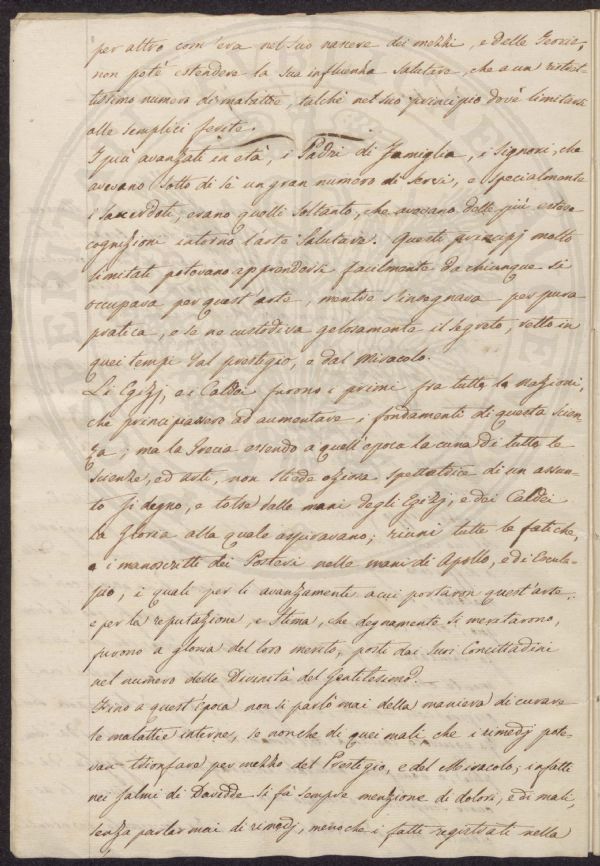 per altro com'era nel suo nascere dei mezzi, e delle Teorie,
non potè estendere la sua influenza salutare, che a un ristret-
tissimo numero di malattie, talchè nel suo principio dovè limitarsi
alle semplici ferite.
I più avanzati in età, i Padri di Famiglia, i Signori, che
avevano sotto di sè un gran numero di servi, e specialmente
i Sacerdoti, erano quelli soltanto, che avevano delle più estese
cognizioni intorno l'arte Salutare. Questi principj molto
limitati potevano apprendersi facilmente da chiunque si
occupava per quest'arte, mentre s'insegnava per pura
pratica, e se ne custodiva gelosamente il segreto, retto in
quei tempi dal prestigio, e dal Miracolo.
Li Egizj, e i Caldei furono i primi fra tutte le nazioni,
che principiassero ad aumentare i fondamenti di questa Scien-
za; ma la Grecia essendo a quell'epoca la cuna di tutte le
Scienze, ed arti, non stiede oziosa spettatrice di un assun-
to sì degno, e tolse dalle mani degli Egizj, e dei Caldei
la Gloria alla quale aspiravano; riunì tutte le fatiche,
e i manoscritti dei Posteri nelle mani di Apollo, e di Escula-
pio, i quali per li avanzamenti a cui portaron quest'arte,
e per la reputazione, e Stima, che degnamente si meritarono,
furono a gloria del loro merito, posti dai suoi Concittadini
nel numero delle Divinità del Gentilesimo.
Fino a quest'Epoca non si parlò mai della maniera di curare
le malattie interne, se non che di quei mali che i rimedj pote-
van trionfare per mezzo del Prestigio, e del Miracolo; infatti
nei Salmi di Davidde si fà sempre menzione di dolori, e di mali,
senza parlar mai di rimedj, meno che i fatti registrati nella